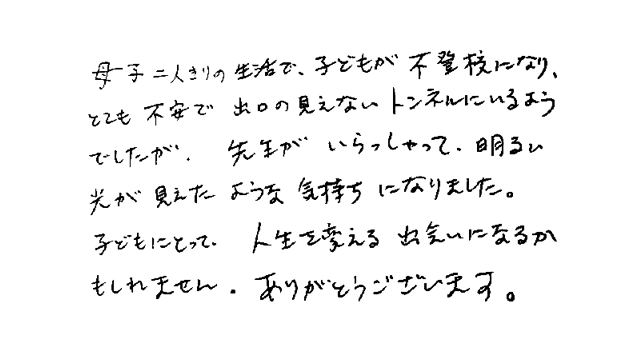 母子二人きりの生活で、子どもが不登校になり、
とても不安で出口の見えないトンネルにいるよう
でしたが、先生がいらっしゃって、明るい
光が見えたような気持ちになりました。
子どもにとって、人生を変える出会いになるか
もしれません。ありがとうございます。